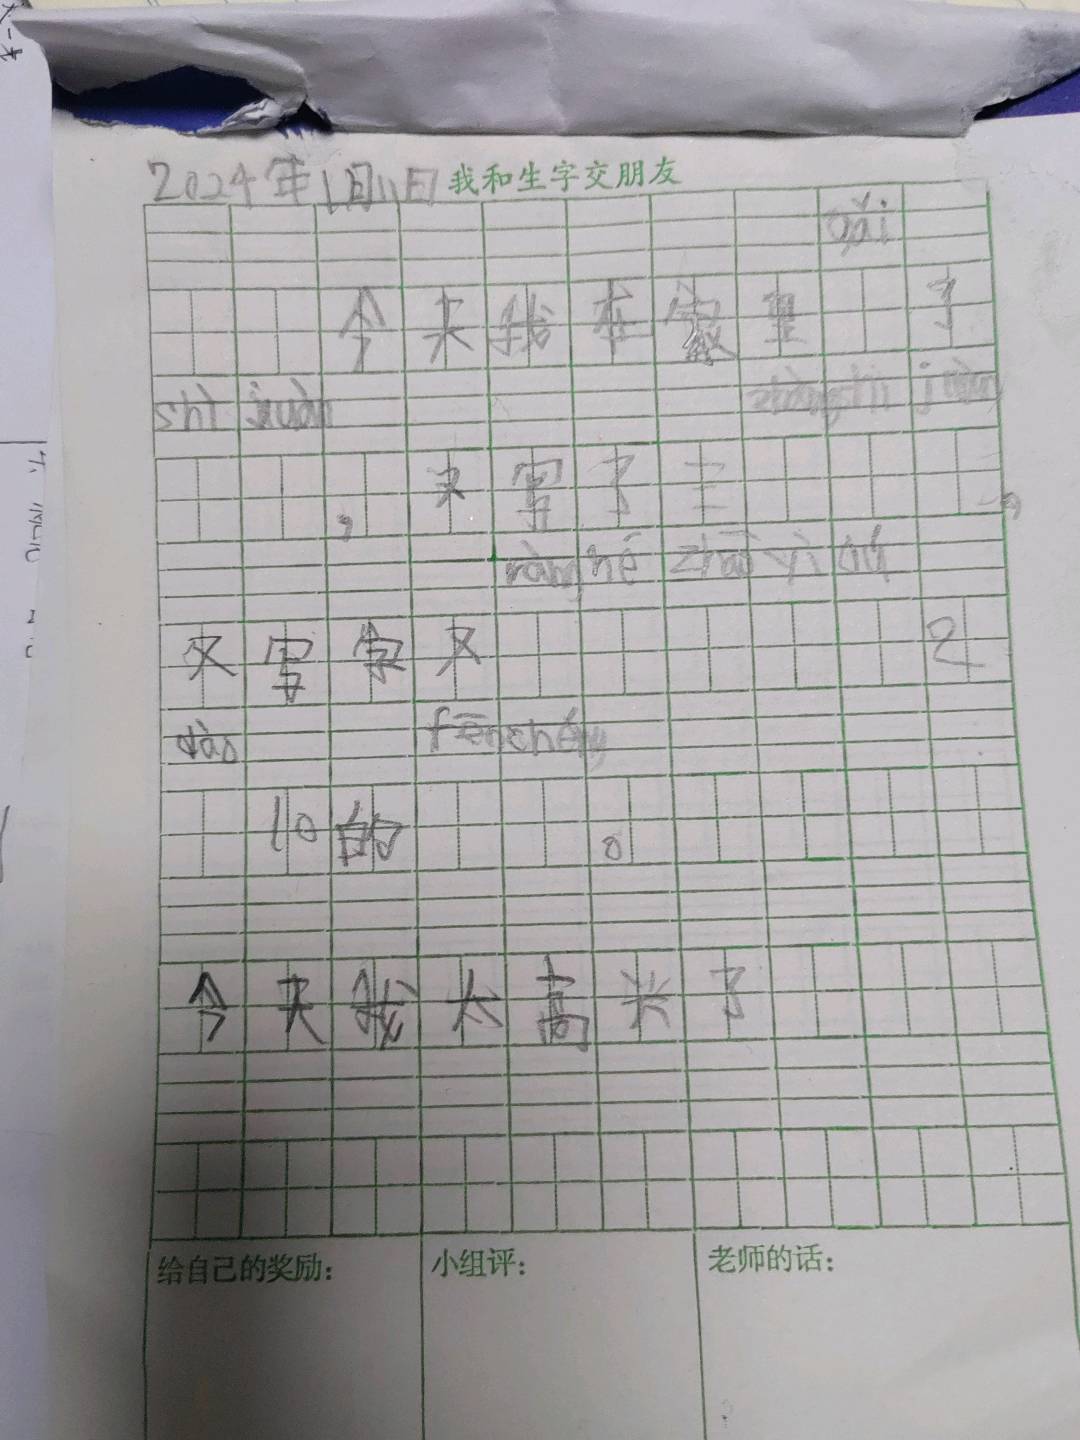 2024年1月11日 我和生字交朋友
gǎi
今天我在教里 了
shì juàn
， 又写了三
ràng hé zhāo yì qǔ
又写字又 2
dào fēn zhōng
10的 。
今天我太高兴了
给自己的奖励： 小组评： 老师的话：